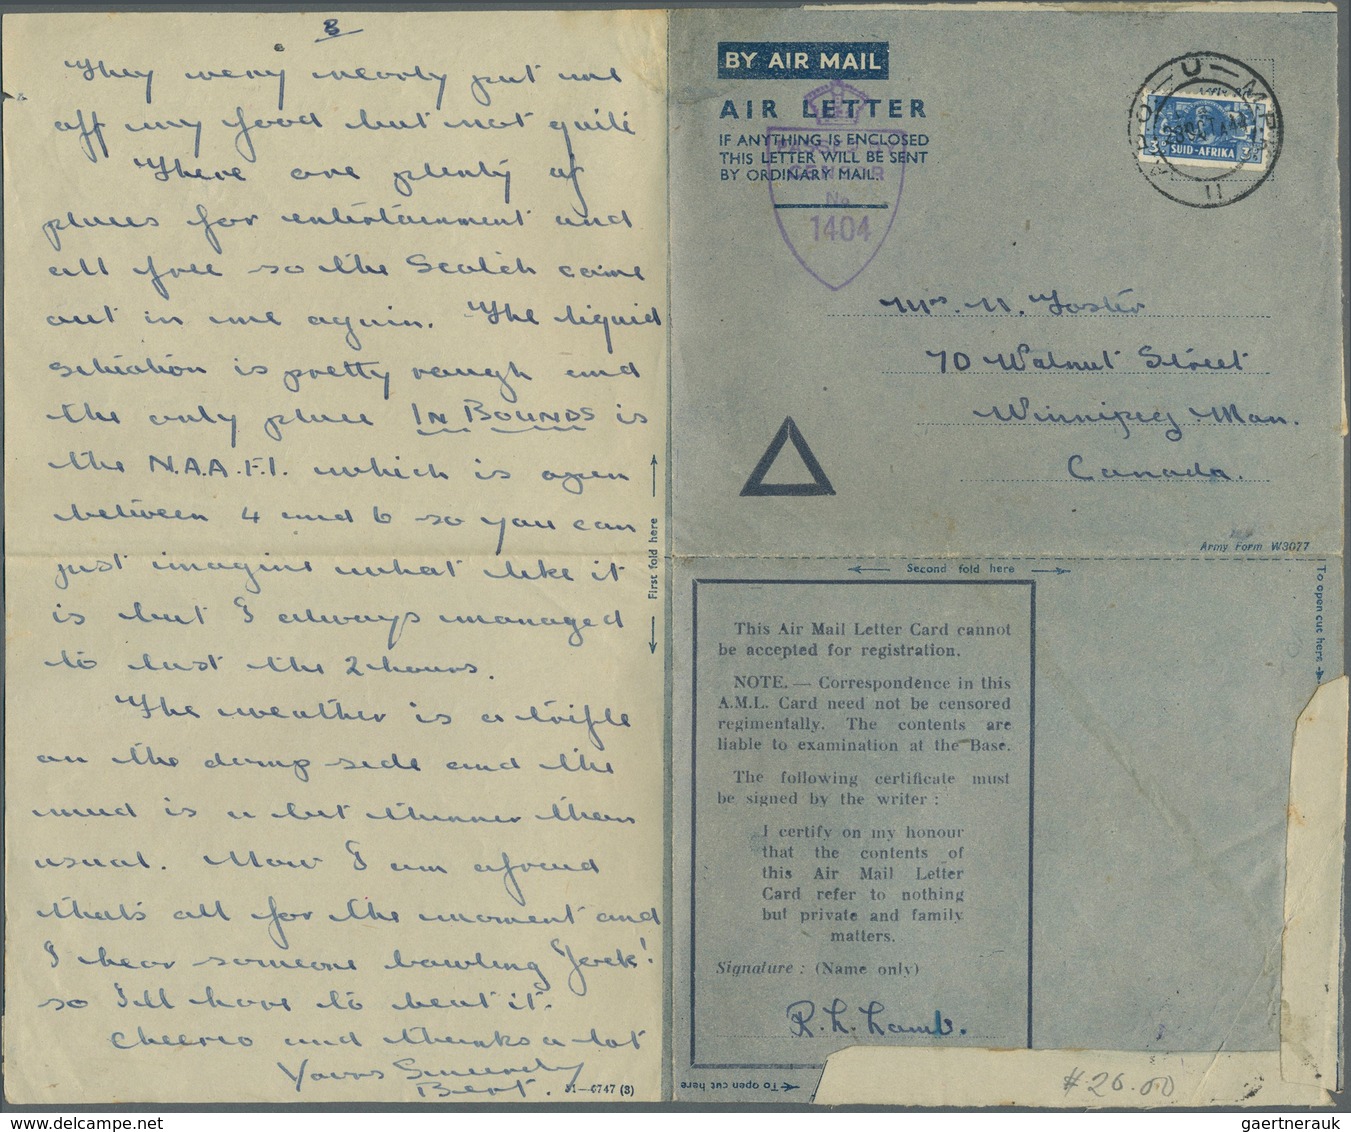 3
They very nearly put me
off my food but not quite
There are plenty of
places for entertainment and
all free so the Scotch came
out in me again. The liquid
situation is pretty rough and
the only place IN BOUNDS is
the N.A.A.F.I. which is open
between 4 and 6 so you can
just imagine what like it
is but I always managed
to last the 2 hours.
The weather is a trifle
on the damp side and the
mud is a bit thinner than
usual. Now I am afraid
thats all for the moment and
I hear someone bawling "Jock!
so I'll have to beat it.
Cheerio and thanks a lot
Yours Sincerely
Bert.
51—6747 (3)
First fold here
BY AIR MAIL
AIR LETTER
IF ANYTHING IS ENCLOSED
THIS LETTER WILL BE SENT
BY ORDINARY MAIL.
CENSOR
No
1404
3D
SUID-AFRIKA
3D
A.P.O.—U—M.P.K.
28 OCT 44
11
Mrs. N. Foster
70 Walnut Street
Winnipeg Man.
Canada.
Army Form W3077
Second fold here
To open cut here
This Air Mail Letter Card cannot
be accepted for registration.
NOTE. — Correspondence in this
A.M.L. Card need not be censored
regimentally. The contents are
liable to examination at the Base.
The following certificate must
be signed by the writer :
I certify on my honour
that the contents of
this Air Mail Letter
Card refer to nothing
but private and family
matters.
Signature : (Name only)
R. L. Lamb.
To open cut here
#20.00
gaertnerauk.com